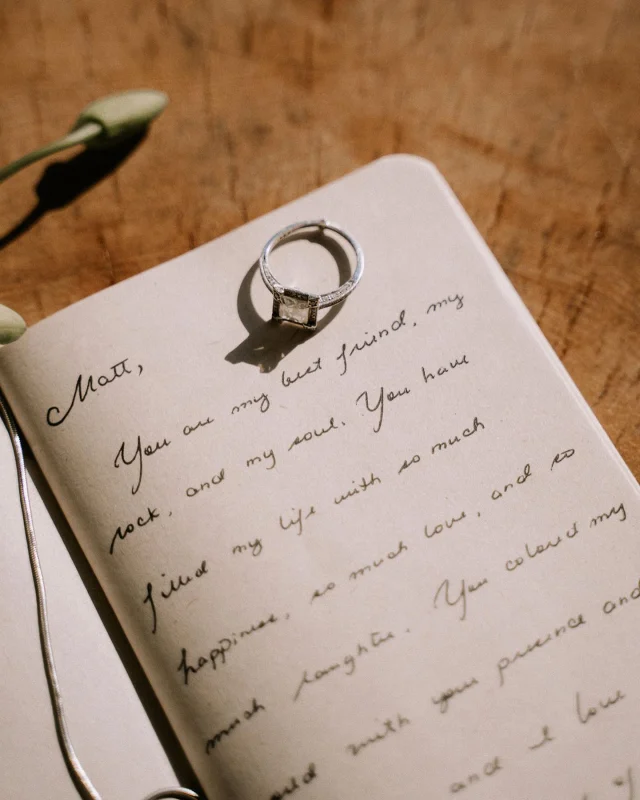 Matt,
You are my best friend, my
rock, and my soul. You have
filled my life with so much
happiness, so much love, and so
much laughter. You colored my
world with your presence and
and I love